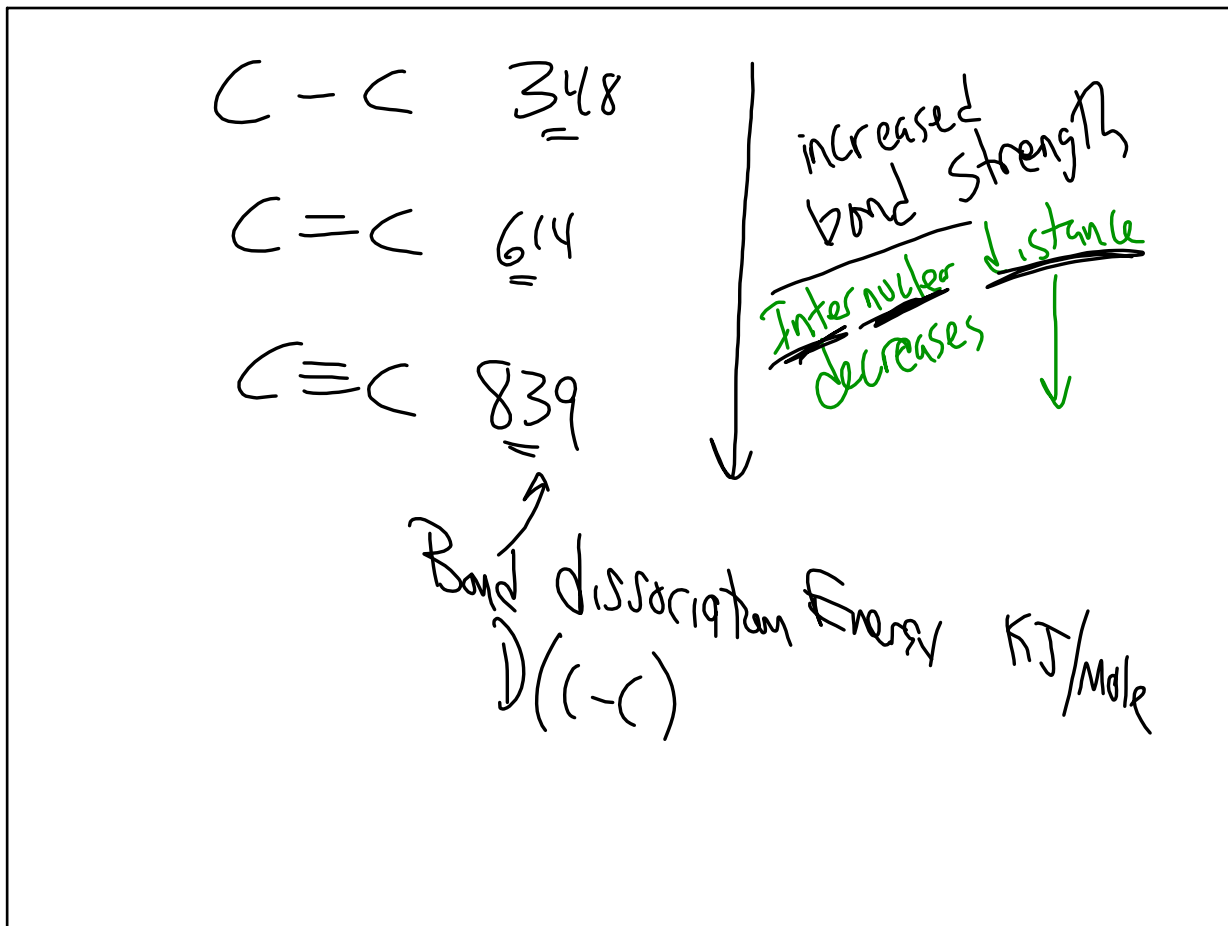 C - C 348
C = C 614
C ≡ C 839
increased
bond strength
Internuclear distance
decreases
Bond dissociation Energy KJ/Mole
D(C-C)